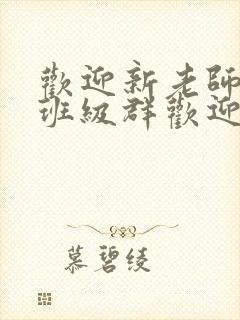 歡迎新老師
班級群歡迎
慕碧綾